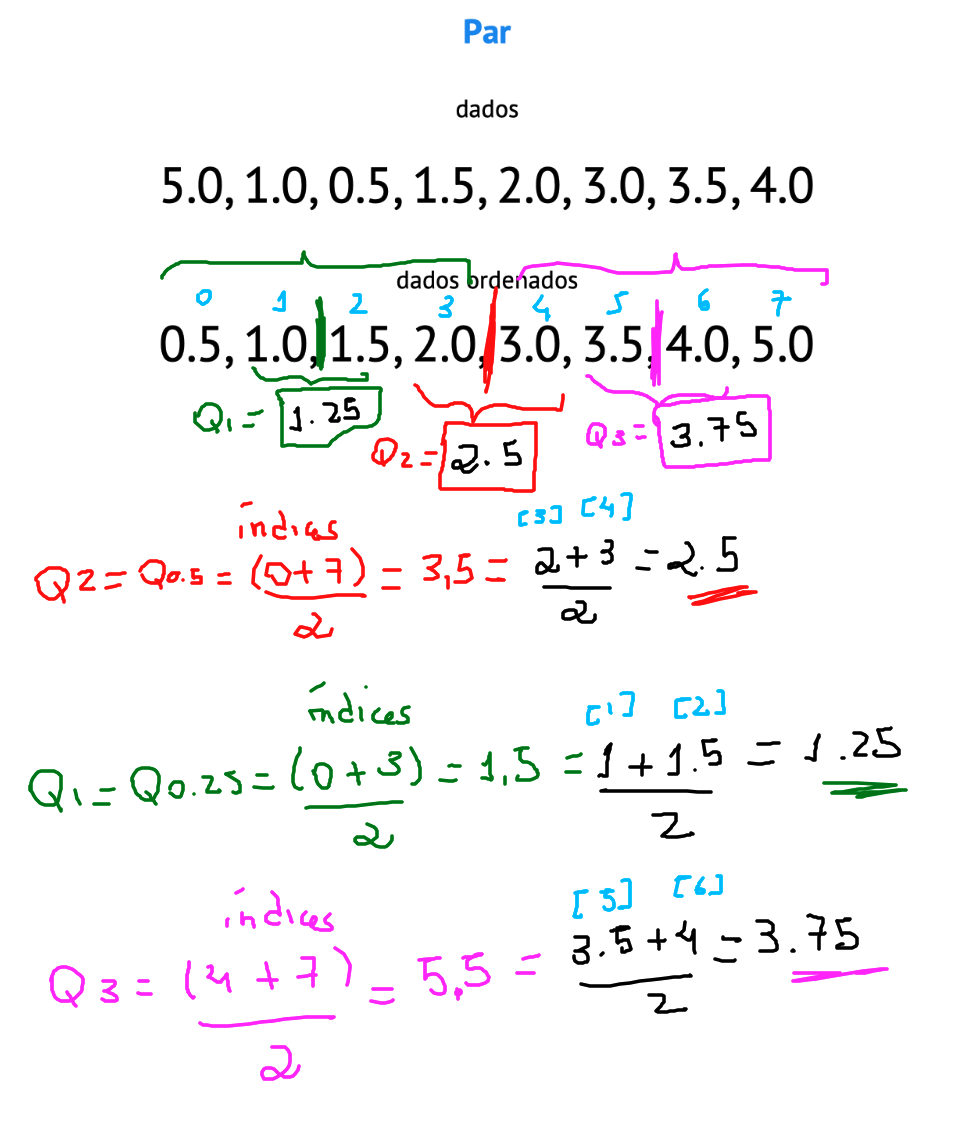 Par
dados
5.0, 1.0, 0.5, 1.5, 2.0, 3.0, 3.5, 4.0
dados ordenados
0 1 2 3 4 5 6 7
0.5, 1.0, 1.5, 2.0, 3.0, 3.5, 4.0, 5.0
Q1 = 1.25
Q2 = 2.5
Q3 = 3.75
índices [3] [4]
Q2 = Q0.5 = (0+7) = 3,5 = 2+3 = 2.5
2 2
índices [1] [2]
Q1 = Q0.25 = (0+3) = 1,5 = 1+1.5 = 1.25
2 2
índices [5] [6]
Q3 = (4+7) = 5,5 = 3.5+4 = 3.75
2 2